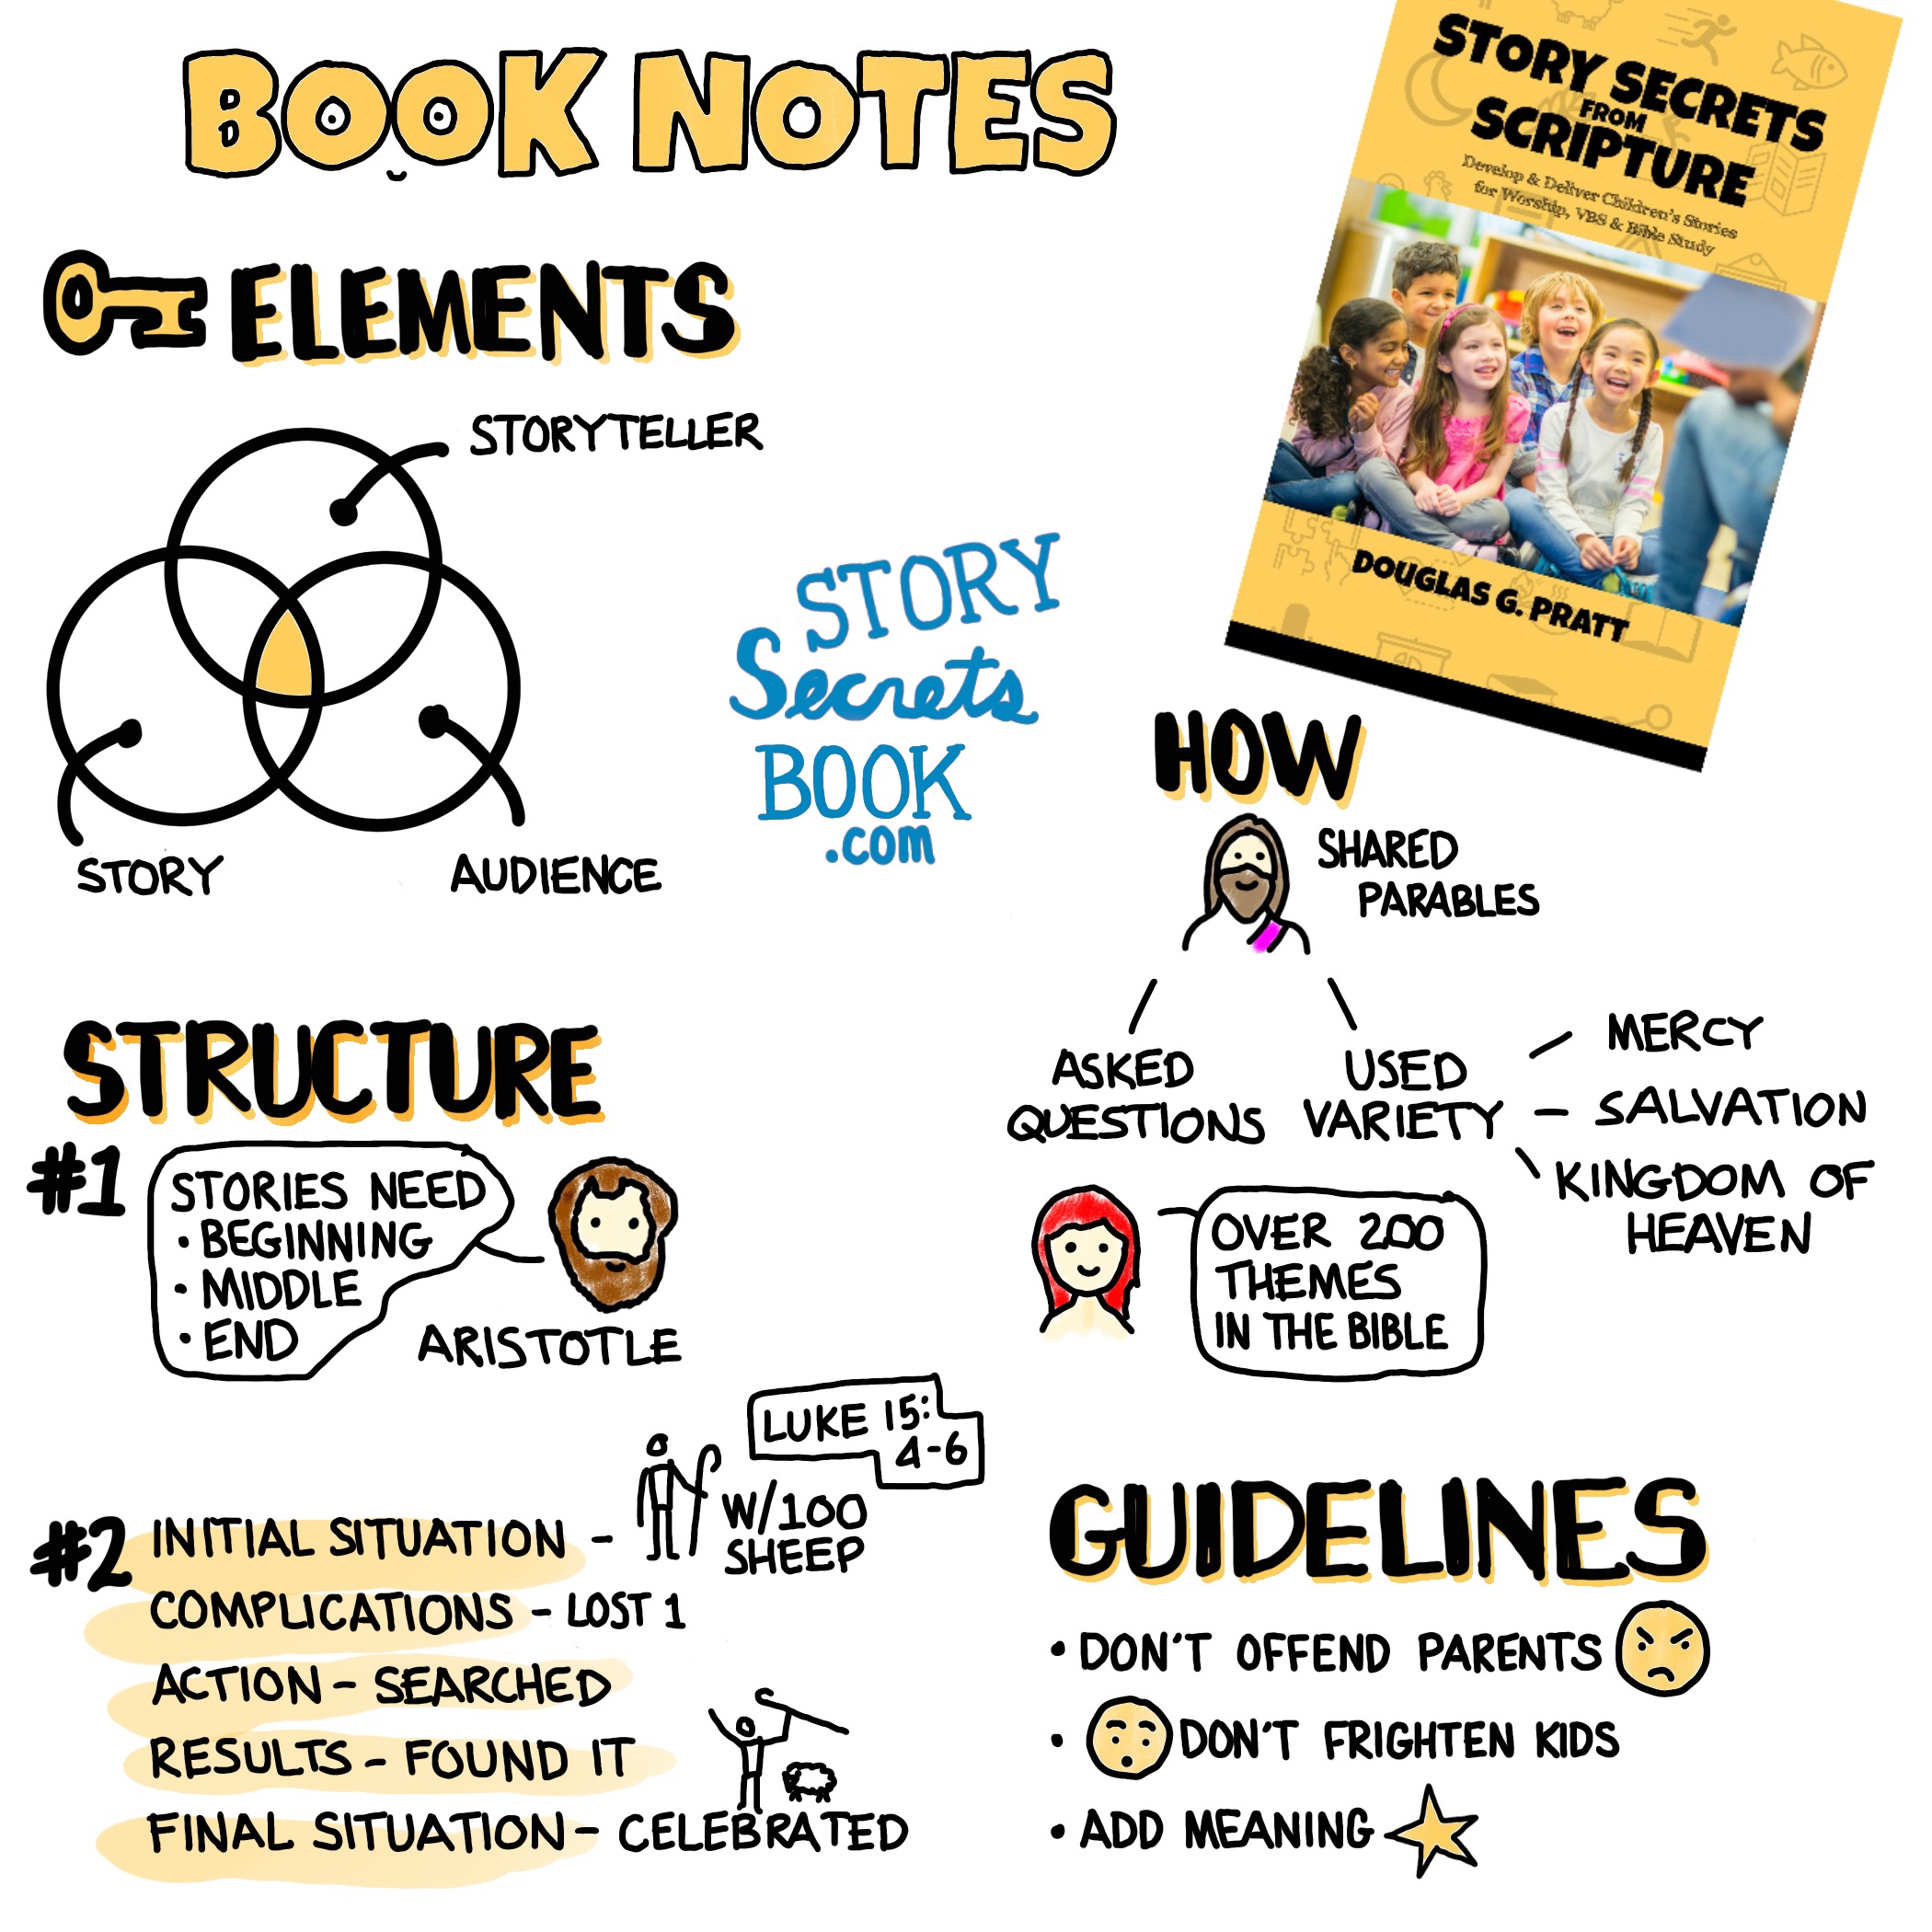 BOOK NOTES
STORY SECRETS
FROM
SCRIPTURE
Develop & Deliver Children's Stories
for Worship, VBS & Bible Study
DOUGLAS G. PRATT
ELEMENTS
STORYTELLER
STORY
AUDIENCE
STORY
Secrets
BOOK
.com
HOW
SHARED
PARABLES
ASKED
QUESTIONS
USED
VARIETY
MERCY
SALVATION
KINGDOM OF
HEAVEN
OVER 200
THEMES
IN THE BIBLE
STRUCTURE
#1
STORIES NEED
• BEGINNING
• MIDDLE
• END
ARISTOTLE
LUKE 15:
4-6
#2
INITIAL SITUATION -
W/100
SHEEP
COMPLICATIONS - LOST 1
ACTION - SEARCHED
RESULTS - FOUND IT
FINAL SITUATION - CELEBRATED
GUIDELINES
• DON'T OFFEND PARENTS
• DON'T FRIGHTEN KIDS
• ADD MEANING